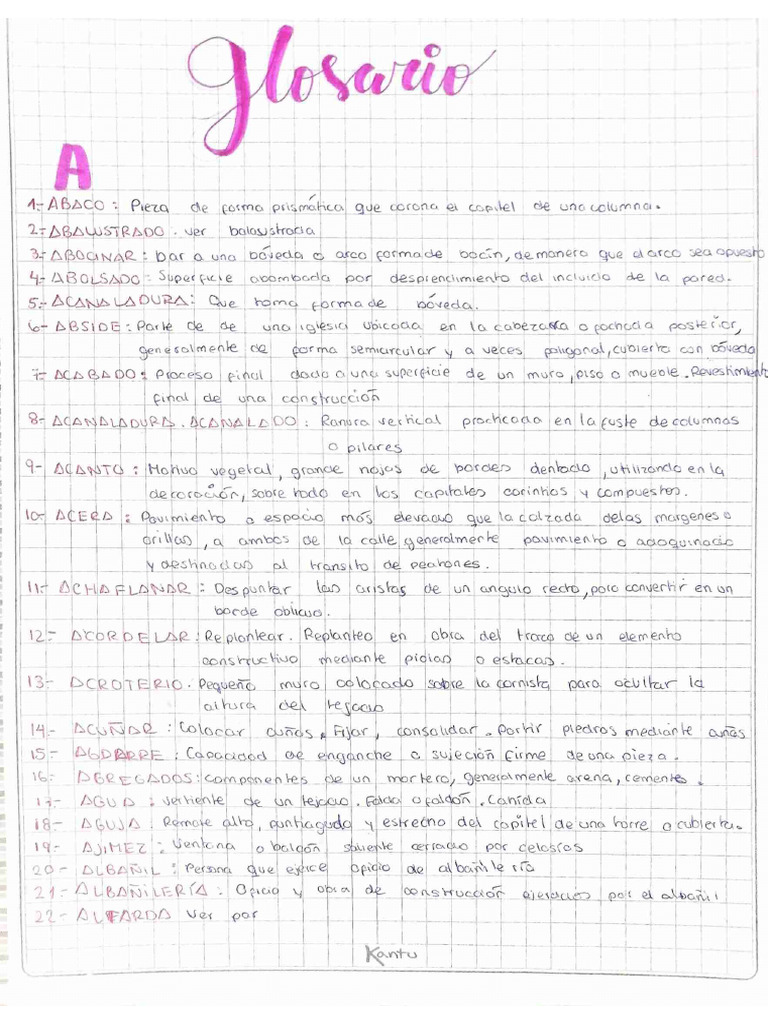 Glosario
A
1.- ABACO : Pieza de forma prismática que corona el capitel de una columna.
2.- ABALUSTRADO. ver balaustrada
3.- ABOCINAR : Dar a una bóveda o arco forma de bocín, de manera que el arco sea apuesto
4.- ABOLSADO : Superficie abombada por desprendimiento del incluido de la pared.
5.- ACANALADURA : Que toma forma de bóveda.
6- ABSIDE : Parte de de una iglesia ubicada en la cabezara o fachada posterior,
generalmente de forma semiarcular y a veces poligonal, cubierto con bóveda
7- ACABADO : Proceso final dado a una superficie de un muro, piso o mueble. Revestimiento
final de una construcción
8- ACANALADURA. ACANALADO : Ranura vertical practicada en la fuste de columnas
o pilares
9- ACANTO : Motivo vegetal, grande hojas de bordes dentado, utilizando en la
decoración, sobre todo en los capitales corintios y compuestos.
10- ACERA : Pavimiento o espacio más elevado que la calzada delas margenes o
orillas, a ambos de la calle generalmente pavimiento o adoquinado
y destinadas al transito de peatones.
11.- ACHAFLANAR : Despuntar las aristas de un angulo recto, para convertir en un
borde oblicuo.
12.- ACORDELAR : Replantear. Replanteo en obra del trazo de un elemento
constructivo mediante piolas o estacas.
13- ACROTERIO. Pequeño muro colocado sobre la cornista para ocultar la
altura del tejado
14.- ACUÑAR : Colocar cuñas, Fijar, consolidar. Partir piedras mediante cuñas
15.- AGARRE : Capacidad de enganche o sujeción firme de una pieza.
16.- AGREGADOS : componentes de un mortero, generalmente arena, cemento.
17.- AGUA : vertiente de un tejado. Falda o faldón. Canida
18.- AGUJA : Remate alto, puntiagudo y estrecho del capitel de una torre o cubierta.
19- AJIMEZ : Ventana o balcón saliente cerrado por celosías
20- ALBAÑIL : Persona que ejerce opicio de albañilería
21- ALBAÑILERÍA : Opicio y obra de construcción ejerados por el albañil
22- ALFARDA Ver par
Kantu